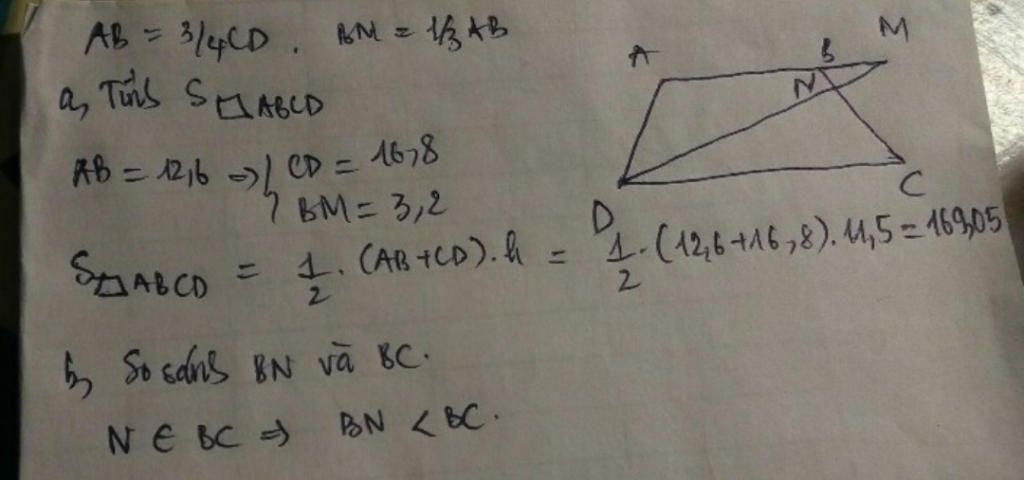 AB = 3/4CD. BM = 1/3 AB
a, Tính S▱ABCD
AB = 12,6 => { CD = 16,8
BM = 3,2
S▱ABCD = 1/2 . (AB+CD).h = 1/2 . (12,6+16,8).11,5 = 169,05
b, So sánh BN và BC.
N ∈ BC => BN < BC.
A
B
M
N
D
C